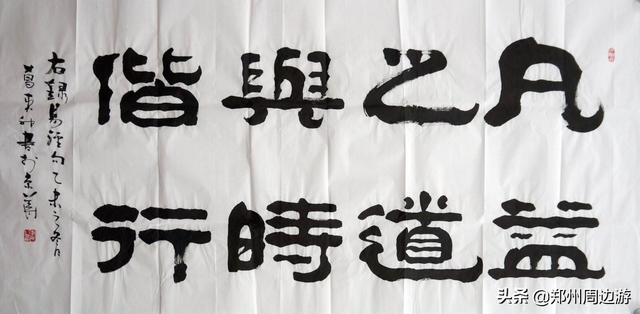 凡益
之道
與時
偕行
右錄易經句乙未之冬月
書於京華
头条 @郑州周边游